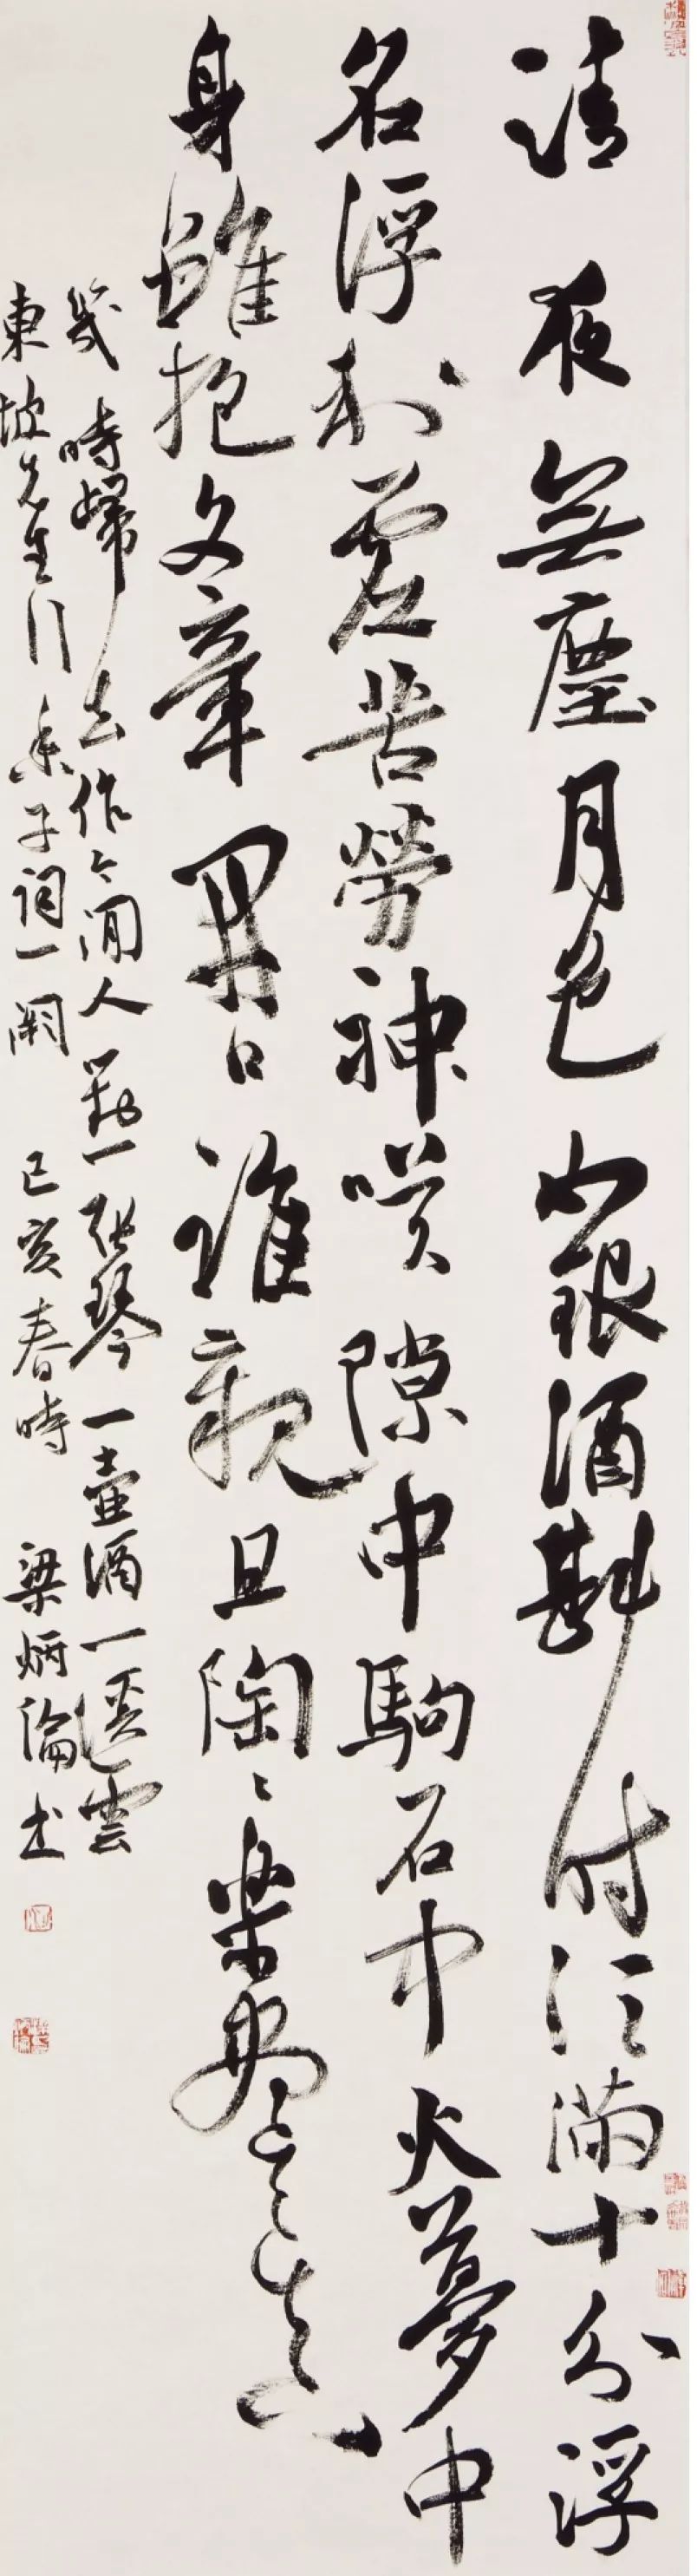 清夜無塵月色如銀酒斟时須滿十分浮
名浮利虛苦勞神嘆隙中駒石中火夢中
身雖抱文章開口誰親且陶〻樂盡天真
幾時歸去作个閒人對一張琴一壺酒一溪雲
東坡先生行香子詞一闋 己亥春時 梁炳倫书